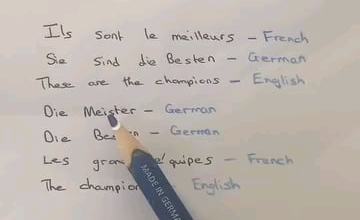 Ils sont le meilleurs - French
Sie sind die Besten - German
These are the champions - English
Die Meister - German
Die - German
Les - French
The - English
MADE IN GERMAN